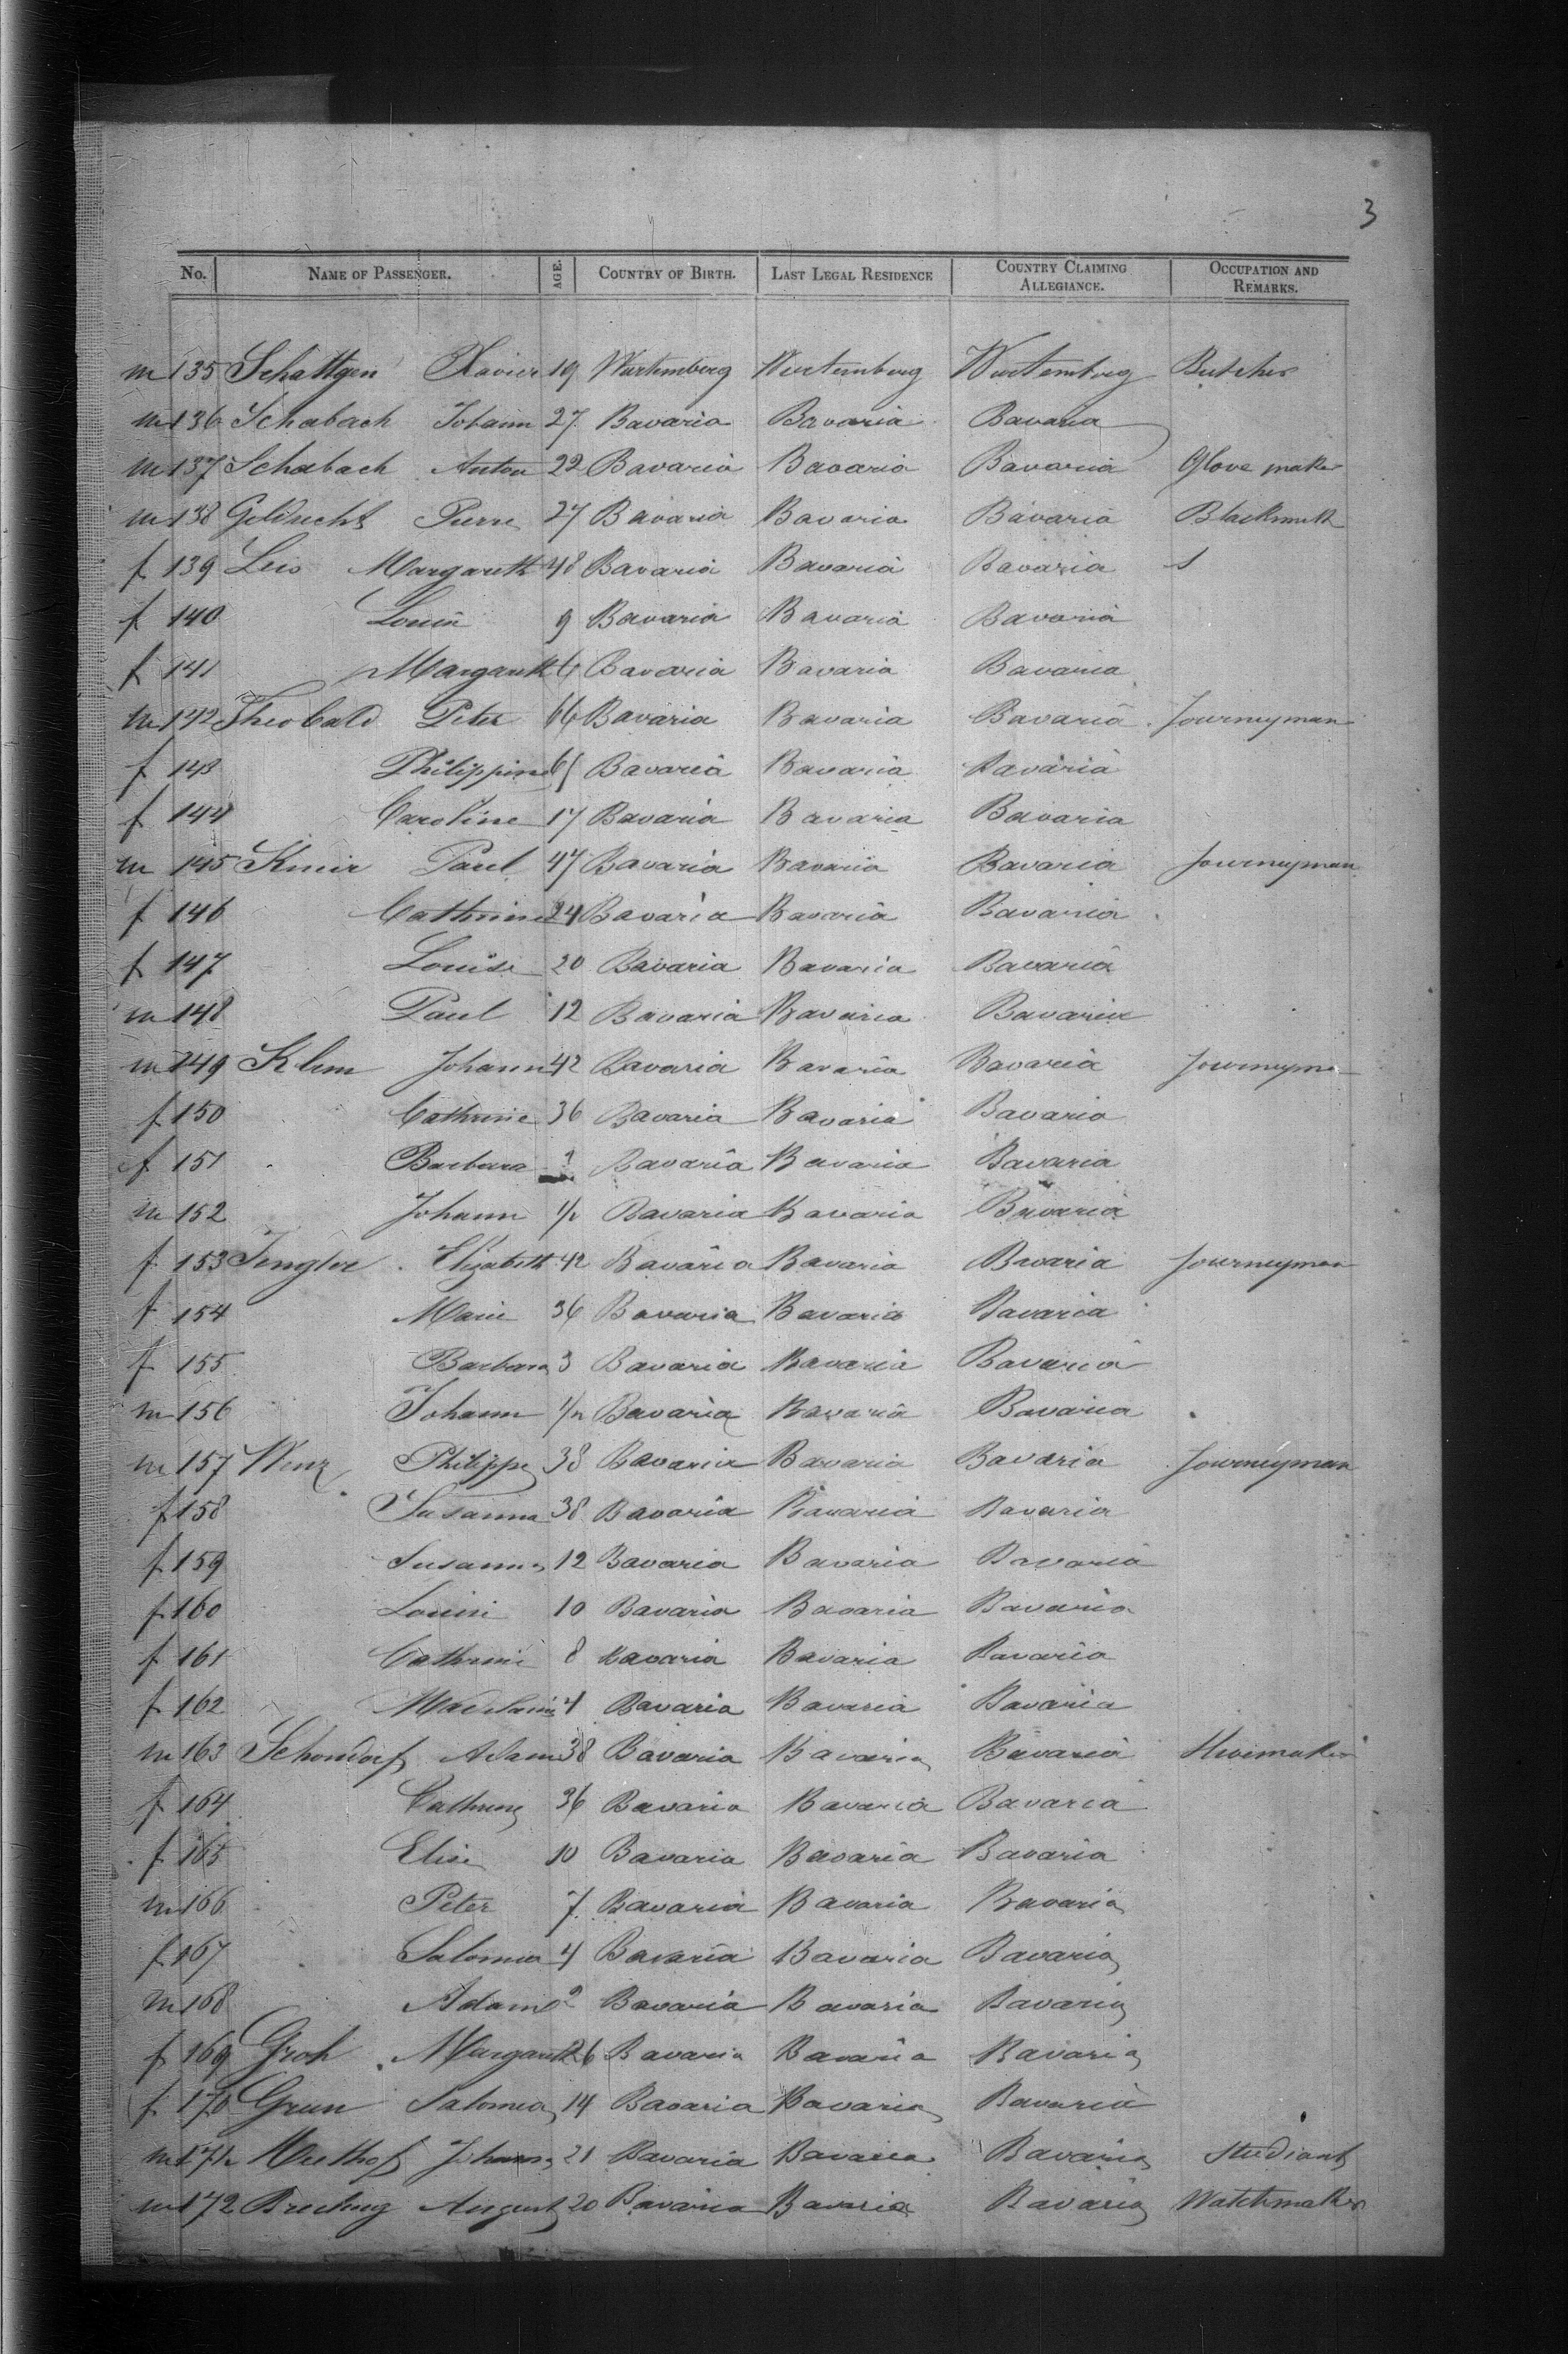 3
No. NAME OF PASSENGER. AGE. COUNTRY OF BIRTH. LAST LEGAL RESIDENCE COUNTRY CLAIMING ALLEGIANCE. OCCUPATION AND REMARKS.
m 135 Schattgen Xavier 19 Wurtemberg Wurtemberg Wurtemberg Butcher
m 136 Schabach Johann 27 Bavaria Bavaria Bavaria
m 137 Schabach Anton 22 Bavaria Bavaria Bavaria Glove maker
m 138 Pierre 27 Bavaria Bavaria Bavaria Blacksmith
f 139 Leis Margareth 48 Bavaria Bavaria Bavaria
f 140 9 Bavaria Bavaria Bavaria
f 141 Margareth 6 Bavaria Bavaria Bavaria
m 142 Theobald Peter 66 Bavaria Bavaria Bavaria Journeyman
f 143 Philippine Bavaria Bavaria Bavaria
f 144 Caroline 17 Bavaria Bavaria Bavaria
m 145 Paul 47 Bavaria Bavaria Bavaria Journeyman
f 146 Cathrine 24 Bavaria Bavaria Bavaria
f 147 Louise 20 Bavaria Bavaria Bavaria
m 148 Paul 12 Bavaria Bavaria Bavaria
m 149 Klem Johann 42 Bavaria Bavaria Bavaria Journeyman
f 150 Cathrine 36 Bavaria Bavaria Bavaria
f 151 Barbara Bavaria Bavaria Bavaria
m 152 Johann Bavaria Bavaria Bavaria
f 153 Elizabeth 42 Bavaria Bavaria Bavaria Journeyman
f 154 Marie 36 Bavaria Bavaria Bavaria
f 155 Barbara 3 Bavaria Bavaria Bavaria
m 156 Johann Bavaria Bavaria Bavaria
m 157 Wenz Philippe 38 Bavaria Bavaria Bavaria Journeyman
f 158 Susanna 38 Bavaria Bavaria Bavaria
f 159 Susanna 12 Bavaria Bavaria Bavaria
f 160 10 Bavaria Bavaria Bavaria
f 161 Cathrine 8 Bavaria Bavaria Bavaria
f 162 4 Bavaria Bavaria Bavaria
m 163 Schondorf Adam 38 Bavaria Bavaria Bavaria Shoemaker
f 164 Cathrine 36 Bavaria Bavaria Bavaria
f 165 Elise 10 Bavaria Bavaria Bavaria
m 166 Peter 7 Bavaria Bavaria Bavaria
f 167 Salomea 4 Bavaria Bavaria Bavaria
m 168 Adam 2 Bavaria Bavaria Bavaria
f 169 Groh Margareth 26 Bavaria Bavaria Bavaria
f 170 Grun Salomea 14 Bavaria Bavaria Bavaria
m 171 Johann 21 Bavaria Bavaria Bavaria Studiant
m 172 August 20 Bavaria Bavaria Bavaria Watchmaker